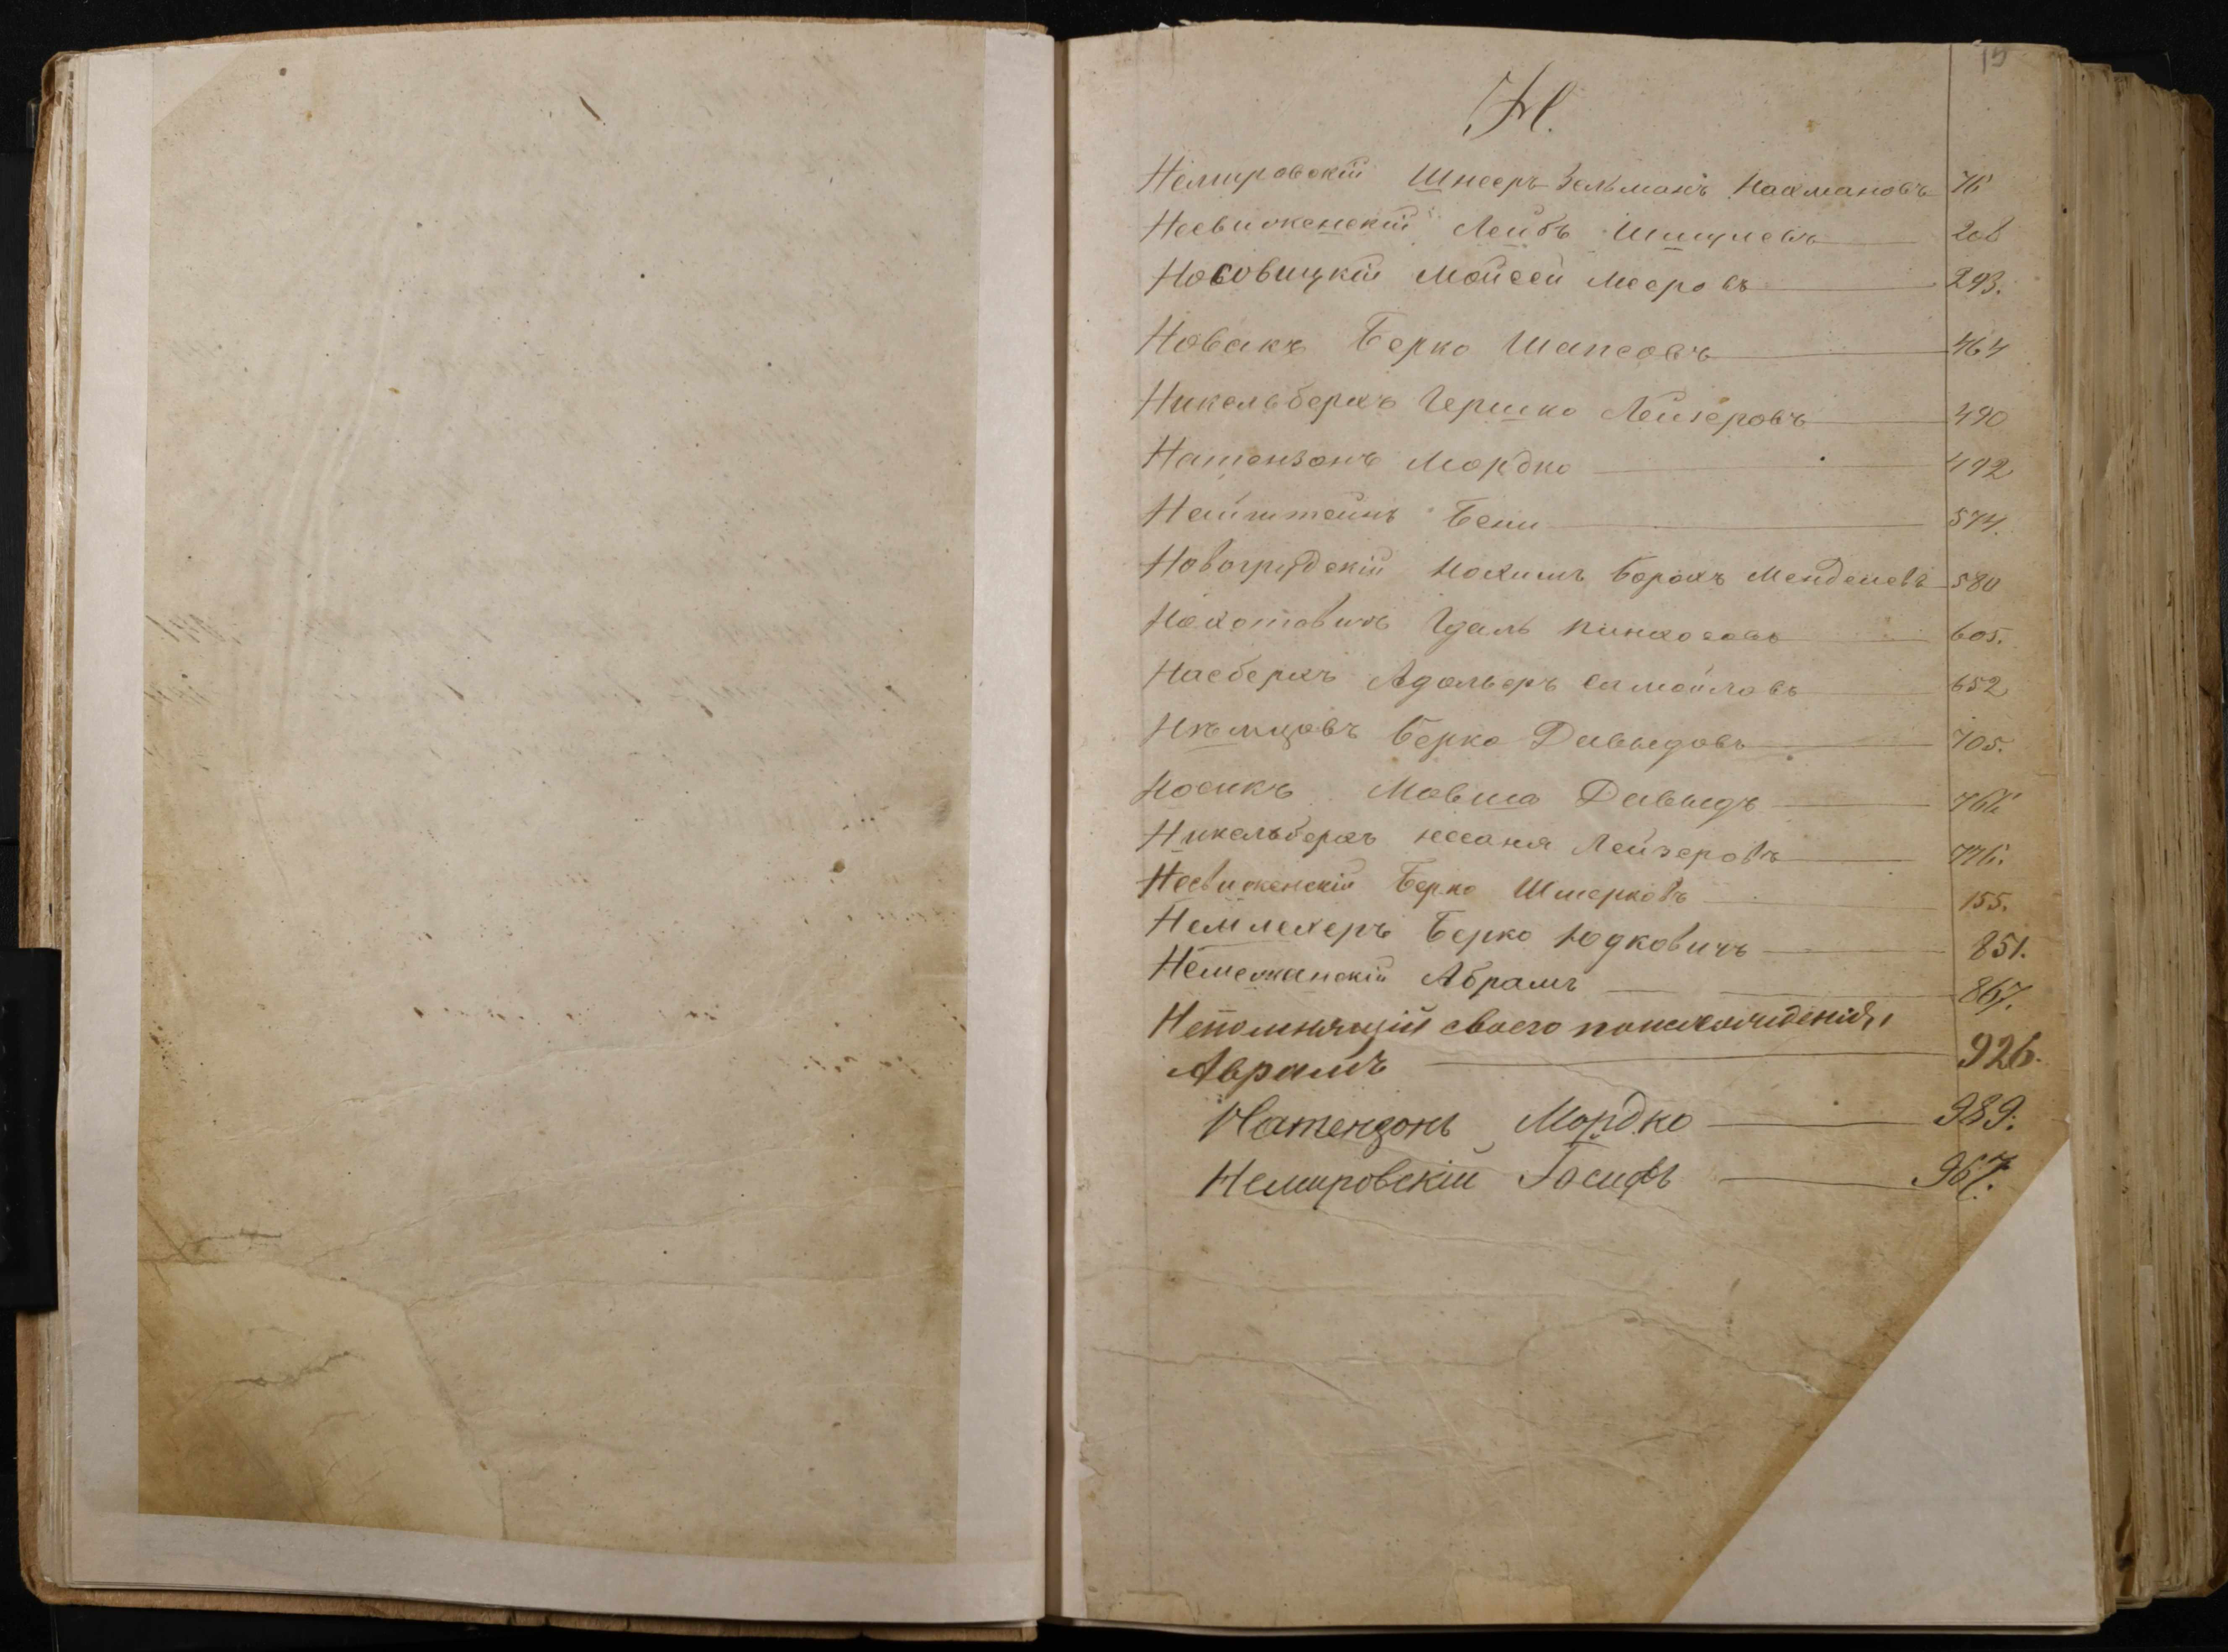 15
Н.
Немировскій Шнееръ Зельманъ Нахмановъ 76
Несвиженскій Лейбъ 208
Носовицкій Мойсей Мееровъ 293.
Новакъ Берко Шапсовъ 464
Никельбергъ Гершко Лейзеровъ 490
Натензонъ Мордко 492
Нейштейнъ Бени 574.
Новогрудскій Нохимъ Борохъ Менделевъ 580
Нохотовичъ Гдаль Пинхосовъ 605.
Насбергъ Адольфъ Самойловъ 652
Нѣмцовъ Берко Давыдовъ 705.
Носикъ Мовша Давыдъ
Никельбергъ Несаня Лейзеровъ 776.
Несвиженскій Берко Шмерковъ 155.
Немлехеръ Берко Юдковичъ 851.
Немежанскій Абрамъ 867.
Непомнящій своего происхожденія,
Аврамъ 926.
Натензонъ Мордко 989.
Немировскій Іосифъ 967.